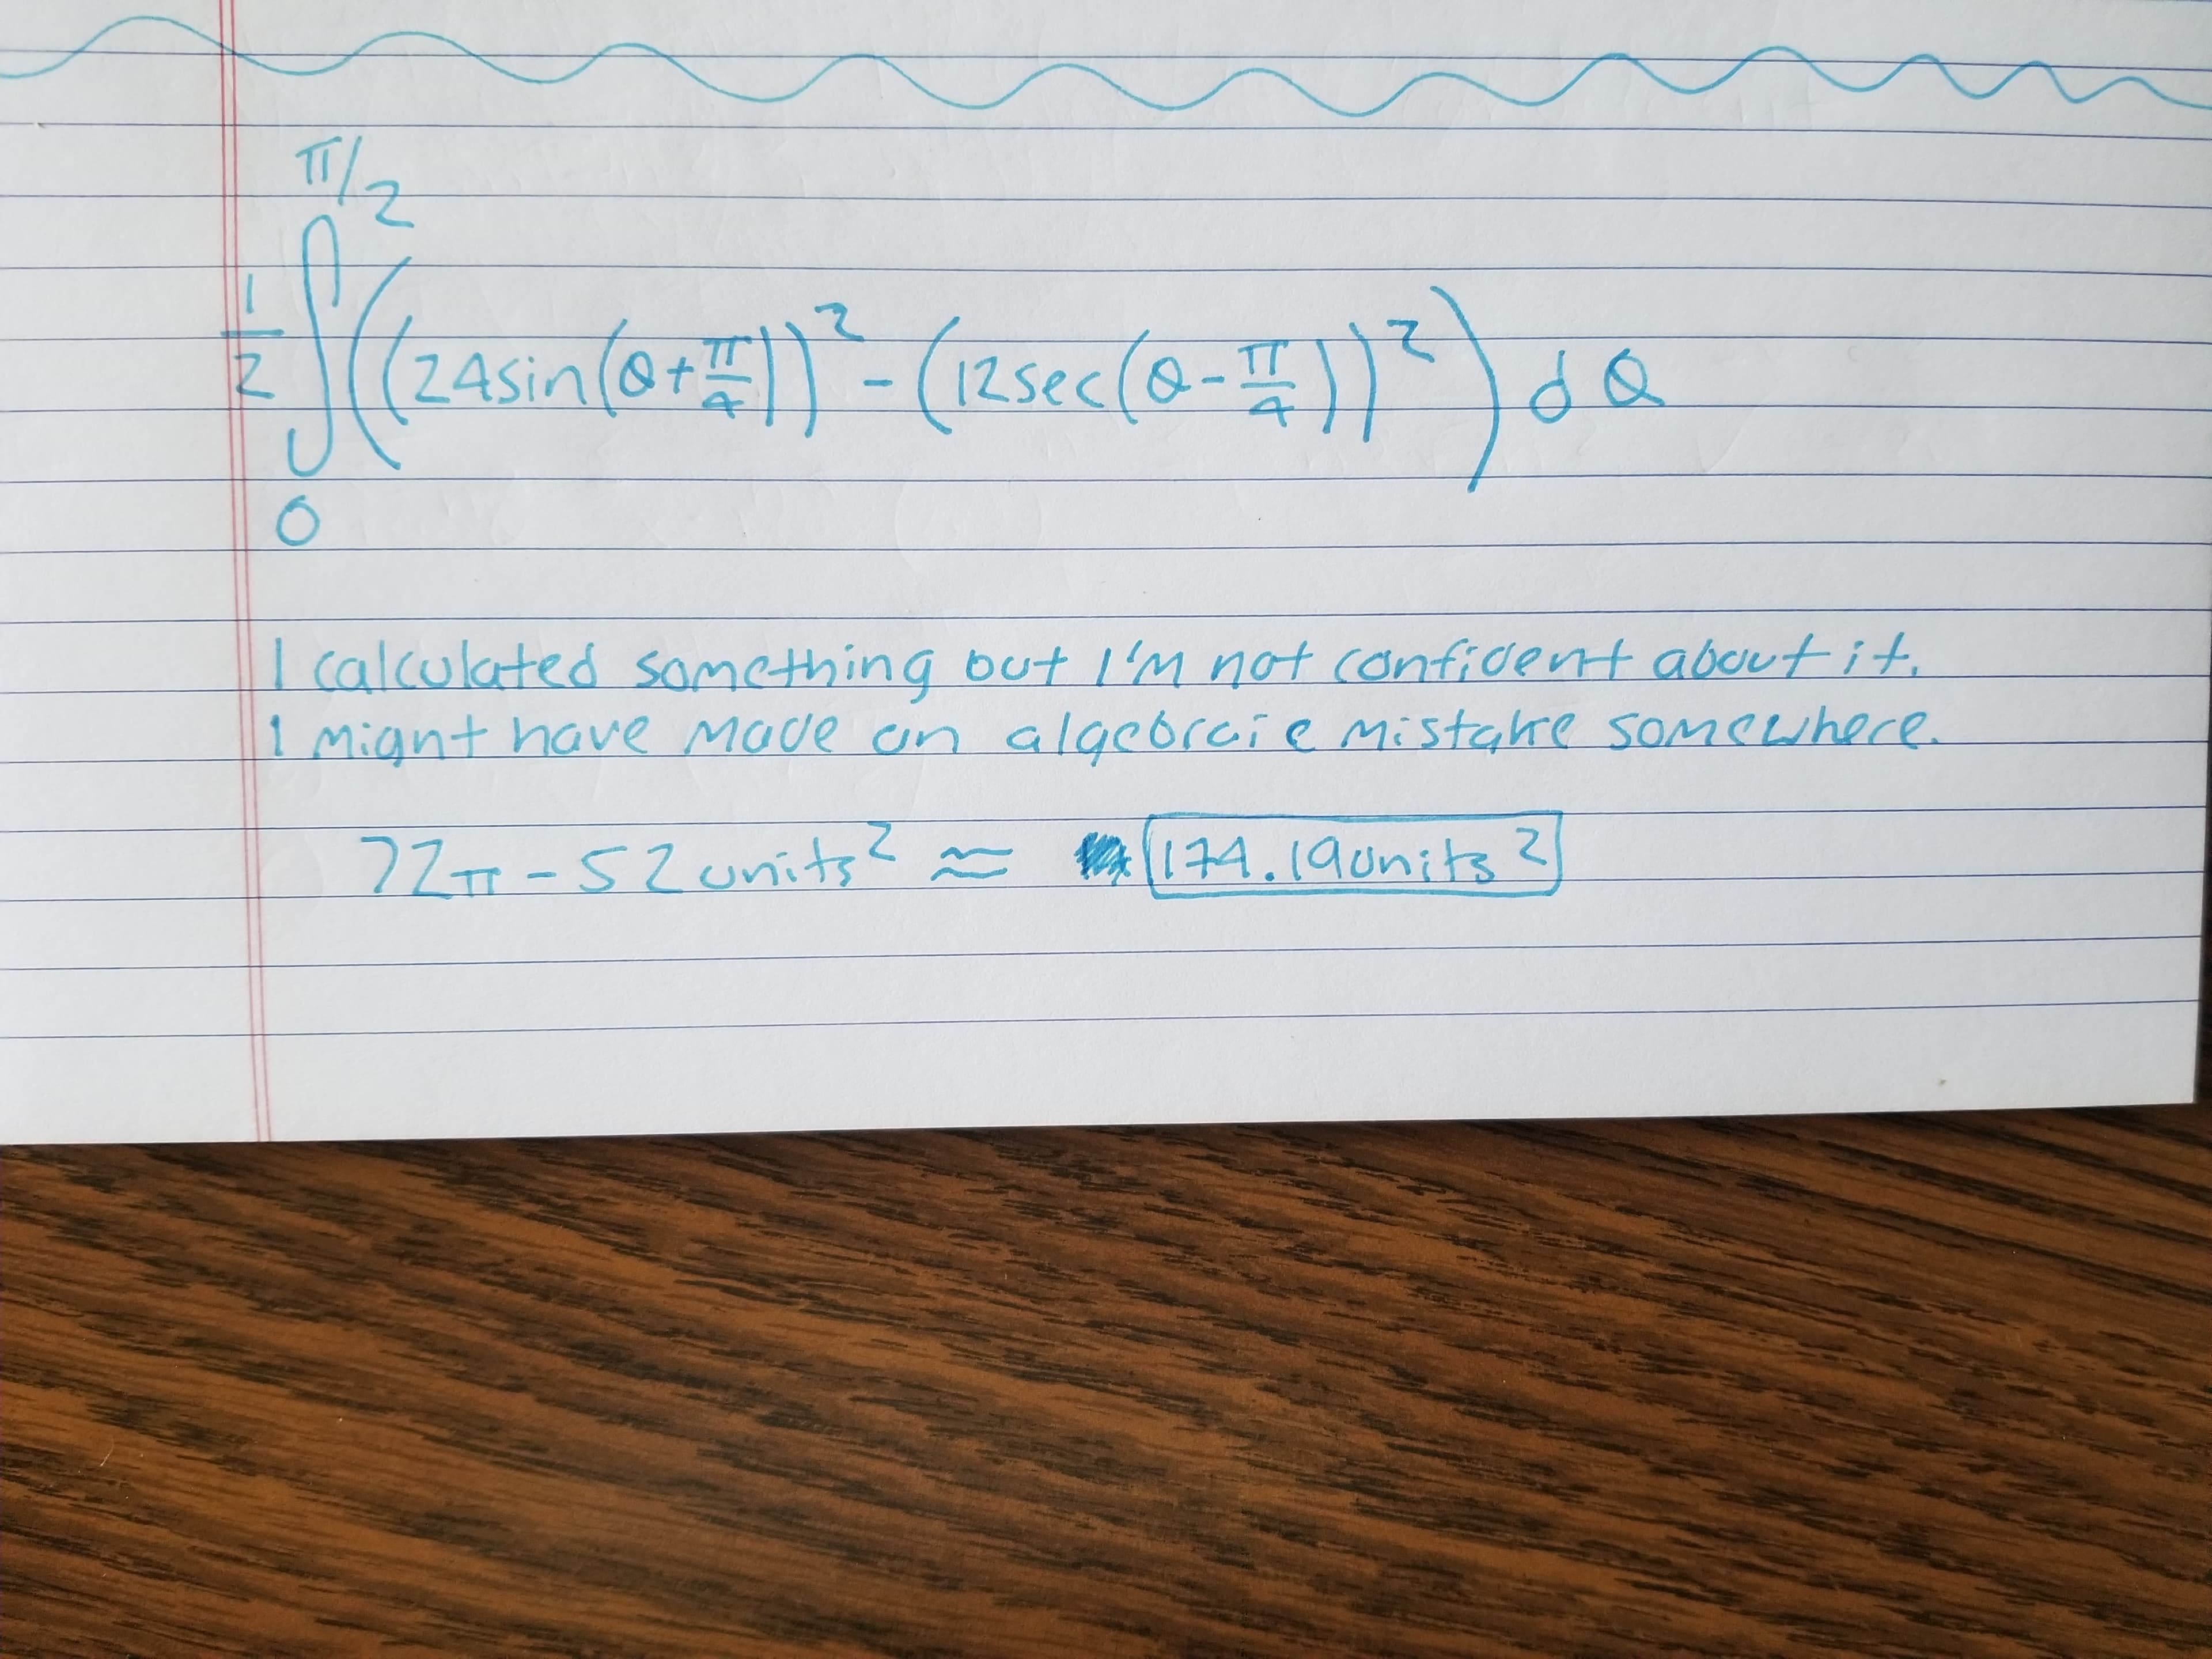 π/2
1/2 ∫ ((24sin(θ+π/4))² - (12sec(θ-π/4))²) dθ
0
I calculated something but I'm not confident about it.
I might have made an algebraic mistake somewhere.
72π - 52 units² ≈ 174.19 units²